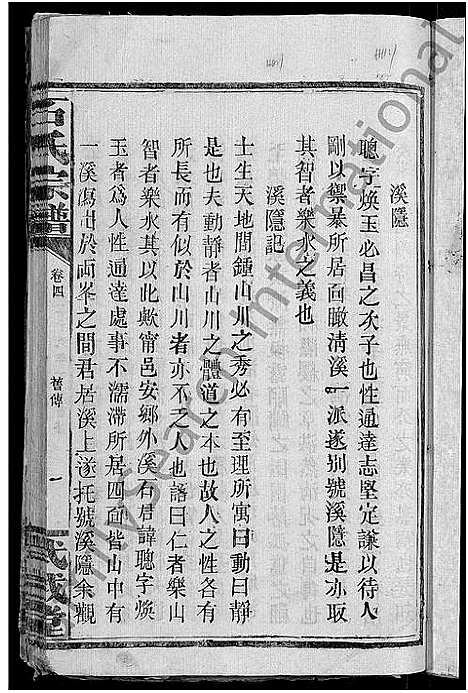 溪隱
聰字煥玉必昌之次子也性通達志堅定謙以待人
剛以禦暴所居面瞰清溪一派遂别號溪隱是亦取
其智者樂水之義也
溪隱記
士生天地間鍾山川之秀必有至理所寓曰動曰靜
是也夫動靜者山川之體道之本也故人之性各有
所長而有似於山川者亦不乏也語曰仁者樂山
智者樂水其以此歟甯邑安鄉外溪石君諱聰字煥
玉者爲人性通達處事不濡滯所居四面皆山中有
一溪瀉出於兩峯之間君居溪上遂托號溪隱余觀
石氏宗譜
卷四
舊傳
一
武威堂
mysearch International